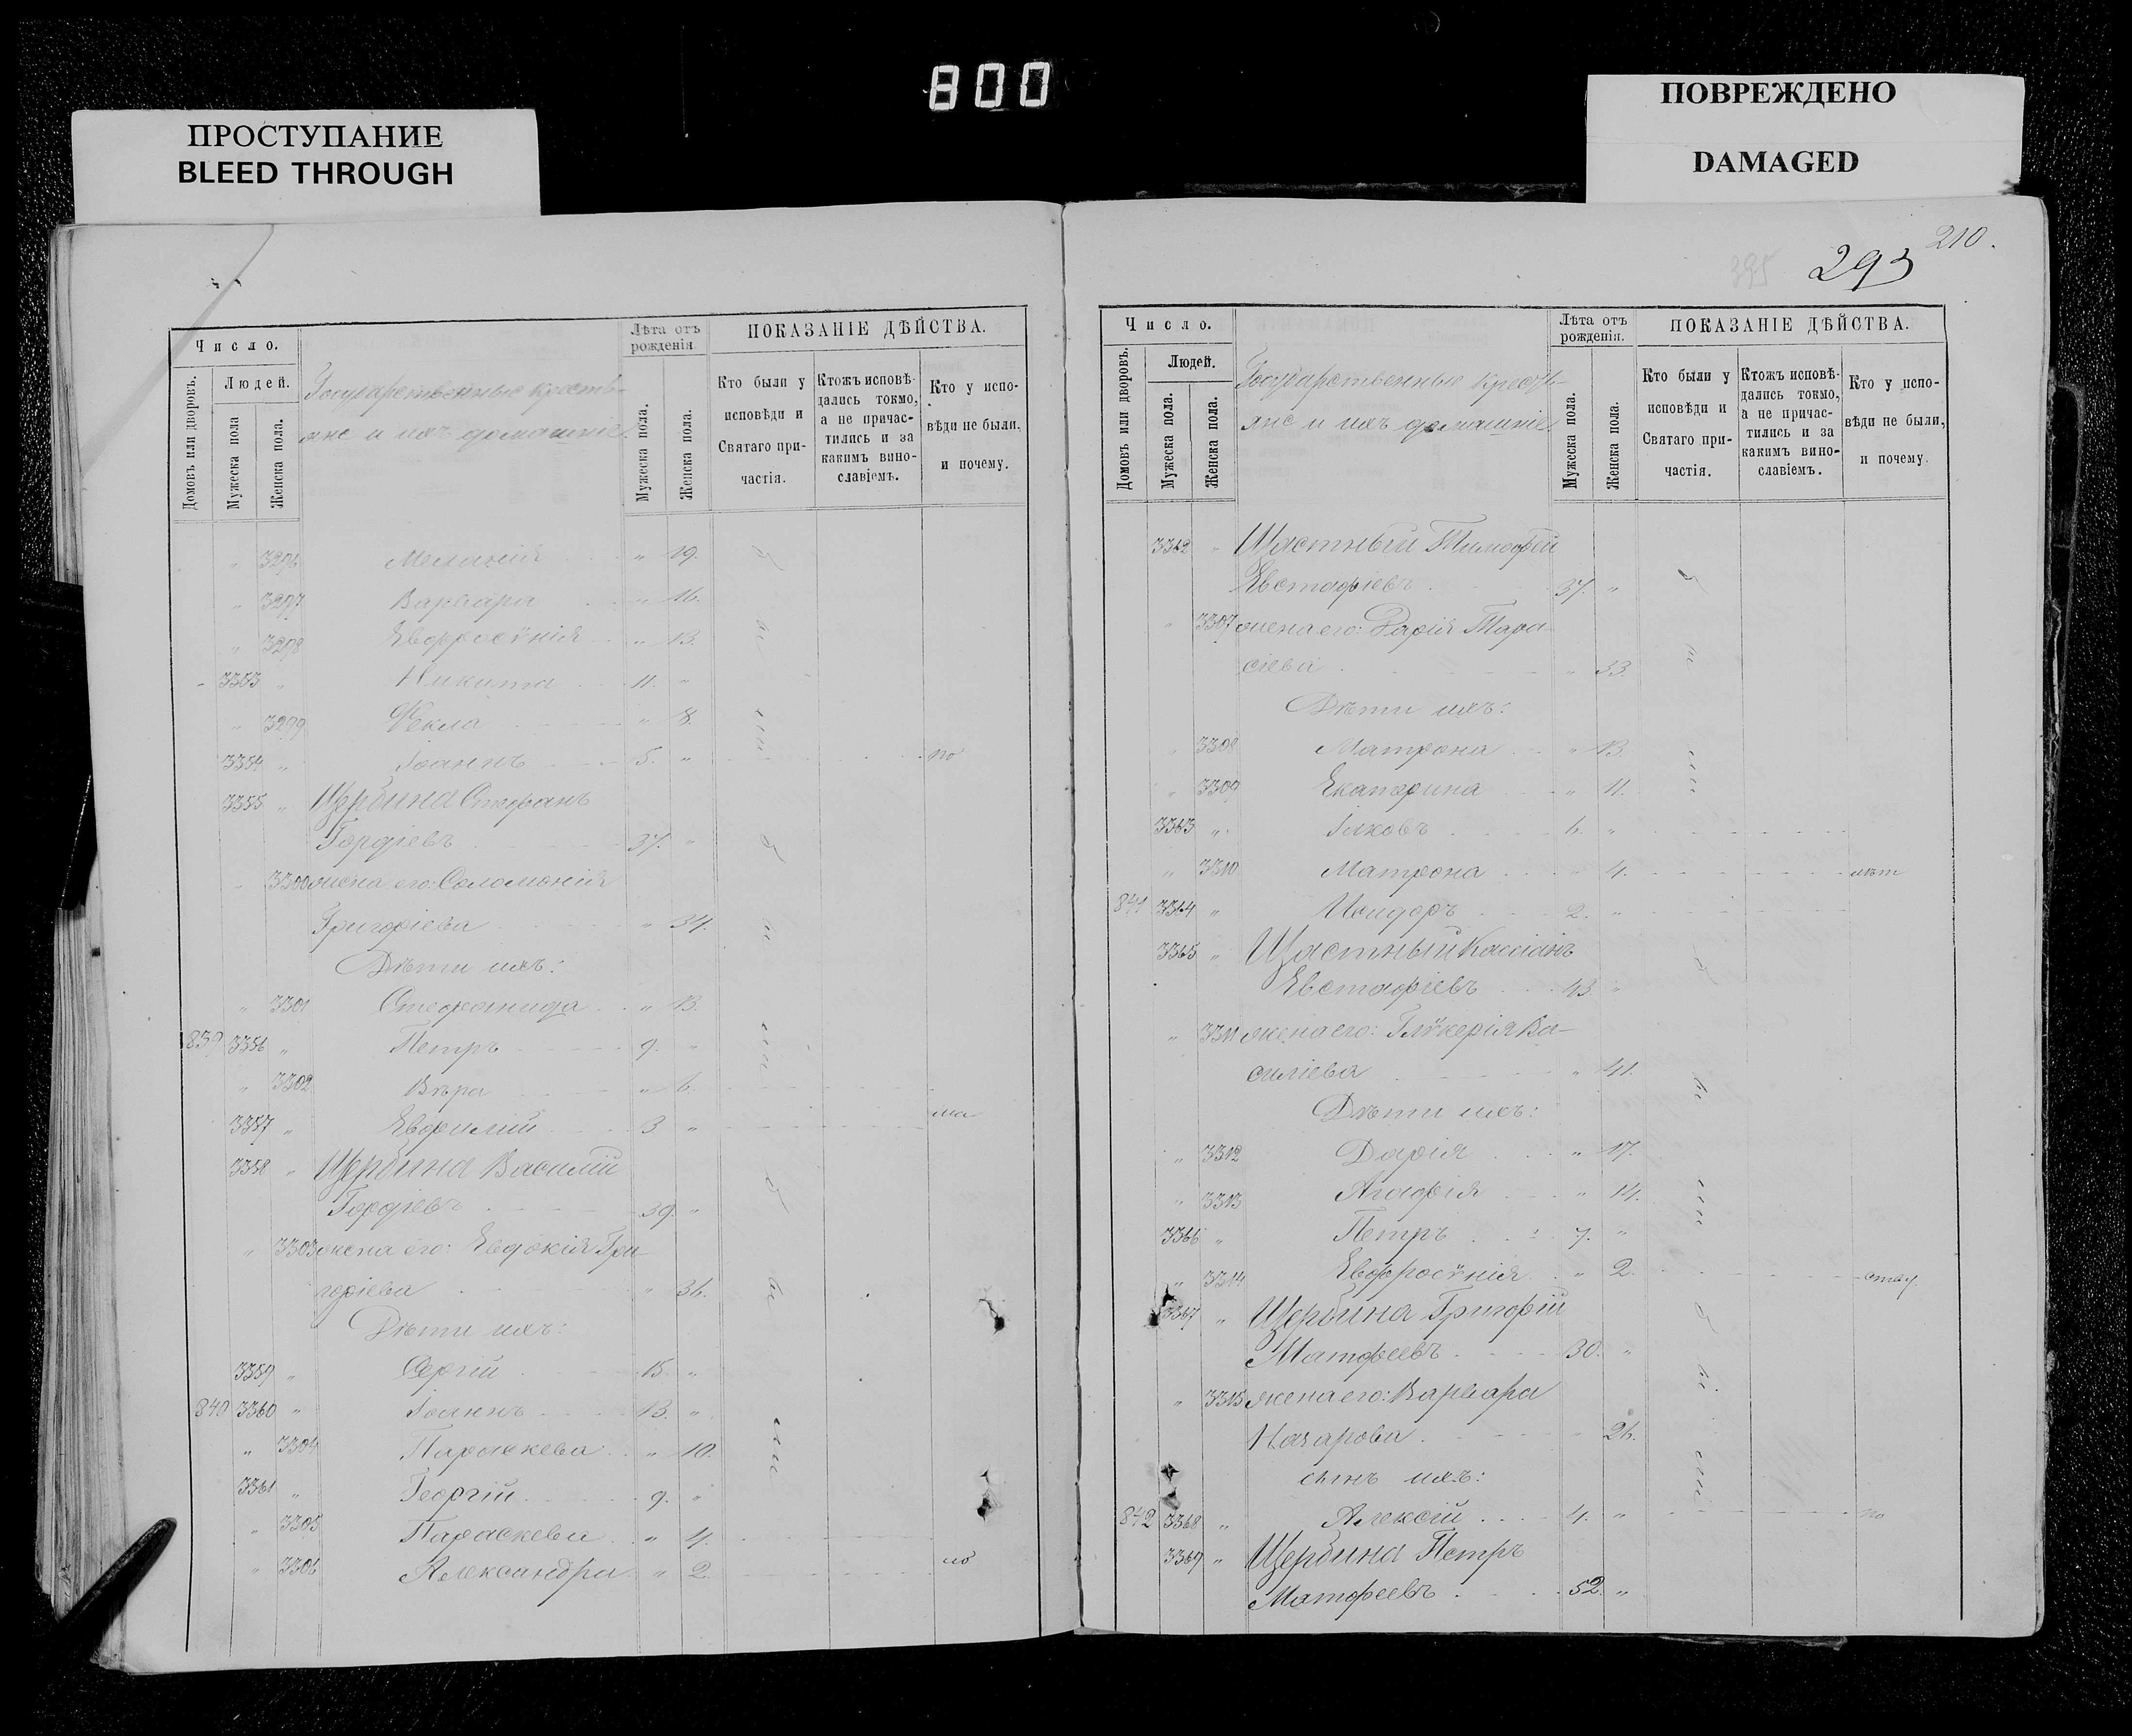 800
ПРОСТУПАНИЕ
BLEED THROUGH
ПОВРЕЖДЕНО
DAMAGED
Число.
Домовъ или дворовъ.
Людей.
Мужеска пола
Женска пола.
Государственные кресть-
яне и ихъ домашніе.
Лѣта отъ
рожденія.
Мужеска пола.
Женска пола.
ПОКАЗАНІЕ ДѢЙСТВА.
Кто были у
исповѣди и
Святаго при-
частія.
Ктожъ исповѣ-
дались токмо,
а не причас-
тились и за
какимъ вино-
славіемъ.
Кто у испо-
вѣди не были,
и почему.
" 3296 Меланія " 19.
" 3297 Варвара " 16.
" 3298 Евфросѵнія " 13.
3353 " Никита 11. "
" 3299 Ѳекла " 8.
3354 " Іоаннъ 5. " по
3355 " Щербина Стефанъ
Гордіевъ 37. "
" 3300 жена его: Соломонія
Григоріева " 34.
Дѣти ихъ:
" 3301 Стефанида " 13.
839 3356 " Петръ 9. "
" 3302 Вѣра " 6.
3357 " Евфимій 3 " ма
3358 " Щербина Василій
Гордіевъ 39. "
" 3303 жена его: Евдокія Гри-
горіева " 36.
Дѣти ихъ:
3359 " Сергій 15. "
840 3360 " Іоаннъ 13. "
" 3304 Параскева " 10.
3361 " Георгій 9. "
" 3305 Параскева " 4.
" 3306 Александра " 2.
210.
293
395
Число.
Домовъ или дворовъ.
Людей.
Мужеска пола.
Женска пола.
Государственные кресть-
яне и ихъ домашніе.
Лѣта отъ
рожденія.
Мужеска пола.
Женска пола.
ПОКАЗАНІЕ ДѢЙСТВА.
Кто были у
исповѣди и
Святаго при-
частія.
Ктожъ исповѣ-
дались токмо,
а не причас-
тились и за
какимъ вино-
славіемъ.
Кто у испо-
вѣди не были,
и почему.
3362 " Щастный Тимофей
Евстафіевъ 37. "
" 3307 жена его: Дарія Тара-
сіева " 33.
Дѣти ихъ:
" 3308 Матрона " 13.
" 3309 Екатерина " 11.
3363 " Іаковъ 6. "
" 3310 Матрона " 4. лѣт
841 3364 " Исидоръ 2. "
3365 " Щастный Кассіанъ
Евстафіевъ 43 "
" 3311 жена его: Глѵкерія Ва-
силіева " 41.
Дѣти ихъ:
" 3312 Дарія " 17.
" 3313 Агафія " 14.
3366 " Петръ 7. "
" 3314 Евфросѵнія " 2.
3367 " Щербина Григорій
Матфеевъ 30. "
" 3315 жена его: Варвара
Назарова 26.
сынъ ихъ:
842 3368 " Алексій 4. " по
3369 " Щербина Петръ
Матфеевъ 52. "